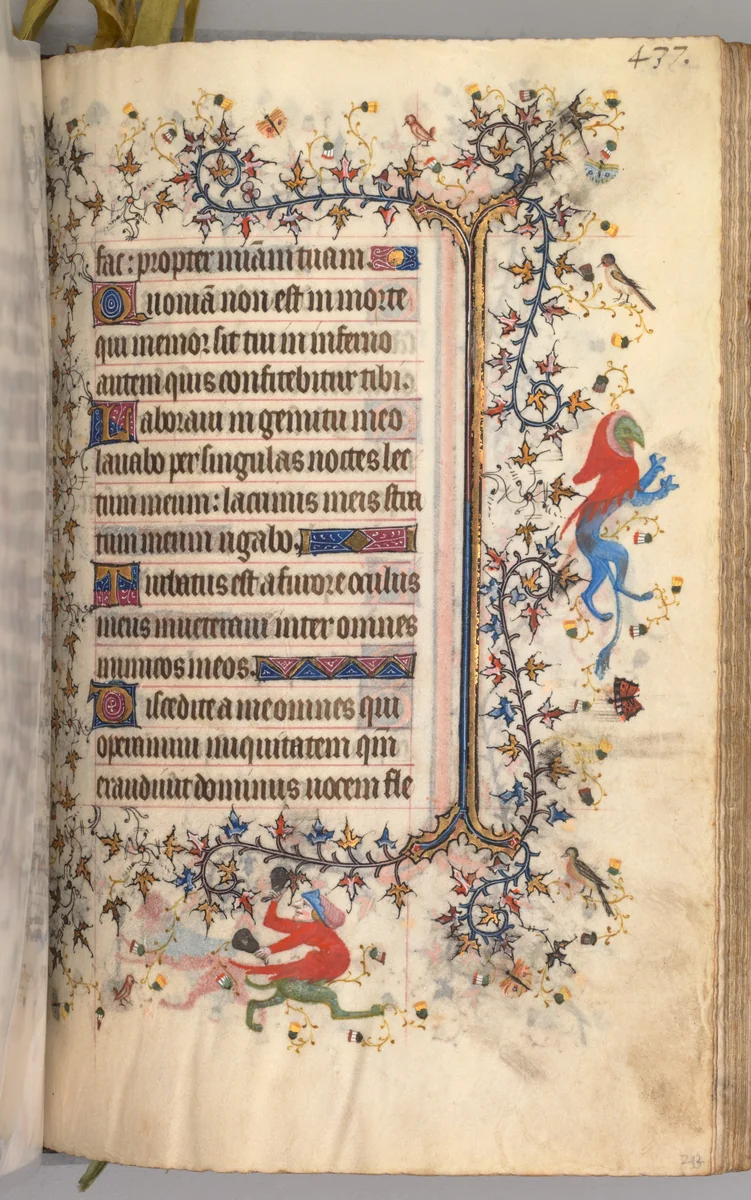 437.
fac: propter miām tuam.
Quoniā non est in morte
qui memor sit tui in inferno
autem quis confitebitur tibi.
Laboraui in gemitu meo
lauabo per singulas noctes lec
tum meum: lacrimis meis stra
tum meum rigabo.
Turbatus est a furore oculus
meus inueteraui inter omnes
inimicos meos.
Discedite a me omnes qui
operamini iniquitatem qm̄
exaudiuit dominus uocem fle